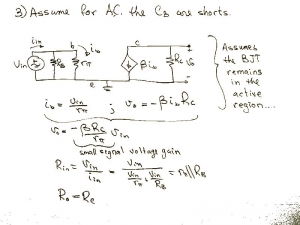 3) Assume for AC, the CB are shorts.
iin b ib c +
Vin RB rπ βib Rc vo
e -
Assumes
the BJT
remains
in the
active
region....
ib = vin/rπ ; vo = -βibRc
vo = -βRc/rπ vin
small signal voltage gain
Rin = vin/iin = vin/(vin/rπ + vin/RB) = rπ//RB
Ro = Rc